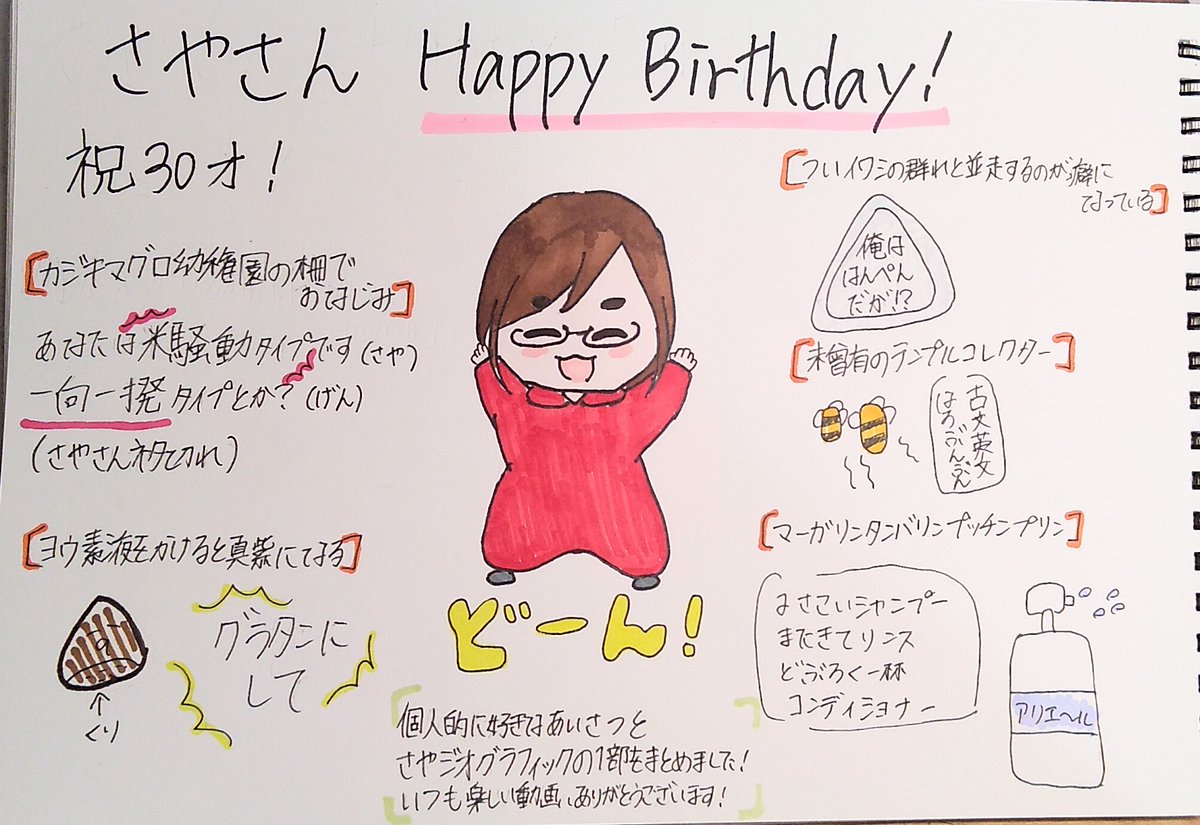 さやさん Happy Birthday!
祝30才!
[カジキマグロ幼稚園の柵で
おなじみ]
あなたは米騒動タイプです(さや)
一向一揆タイプとか?(げん)
(さやさんネタ切れ)
[ヨウ素液をかけると真紫になる]
グラタンに
して
↑
くり
どーん!
個人的に好きなあいさつと
さやジオグラフィックの1部をまとめました!
いつも楽しい動画、ありがとうございます!
[ついイワシの群れと並走するのが癖に
なっている]
俺は
はんぺん
だが!?
[未曾有のテンプルコレクター]
古文英文
はちぶんぶん
[マーガリンタンバリンプッチンプリン]
よさこいシャンプー
またきてリンス
どぶろく一杯
コンディショナー
アリエール